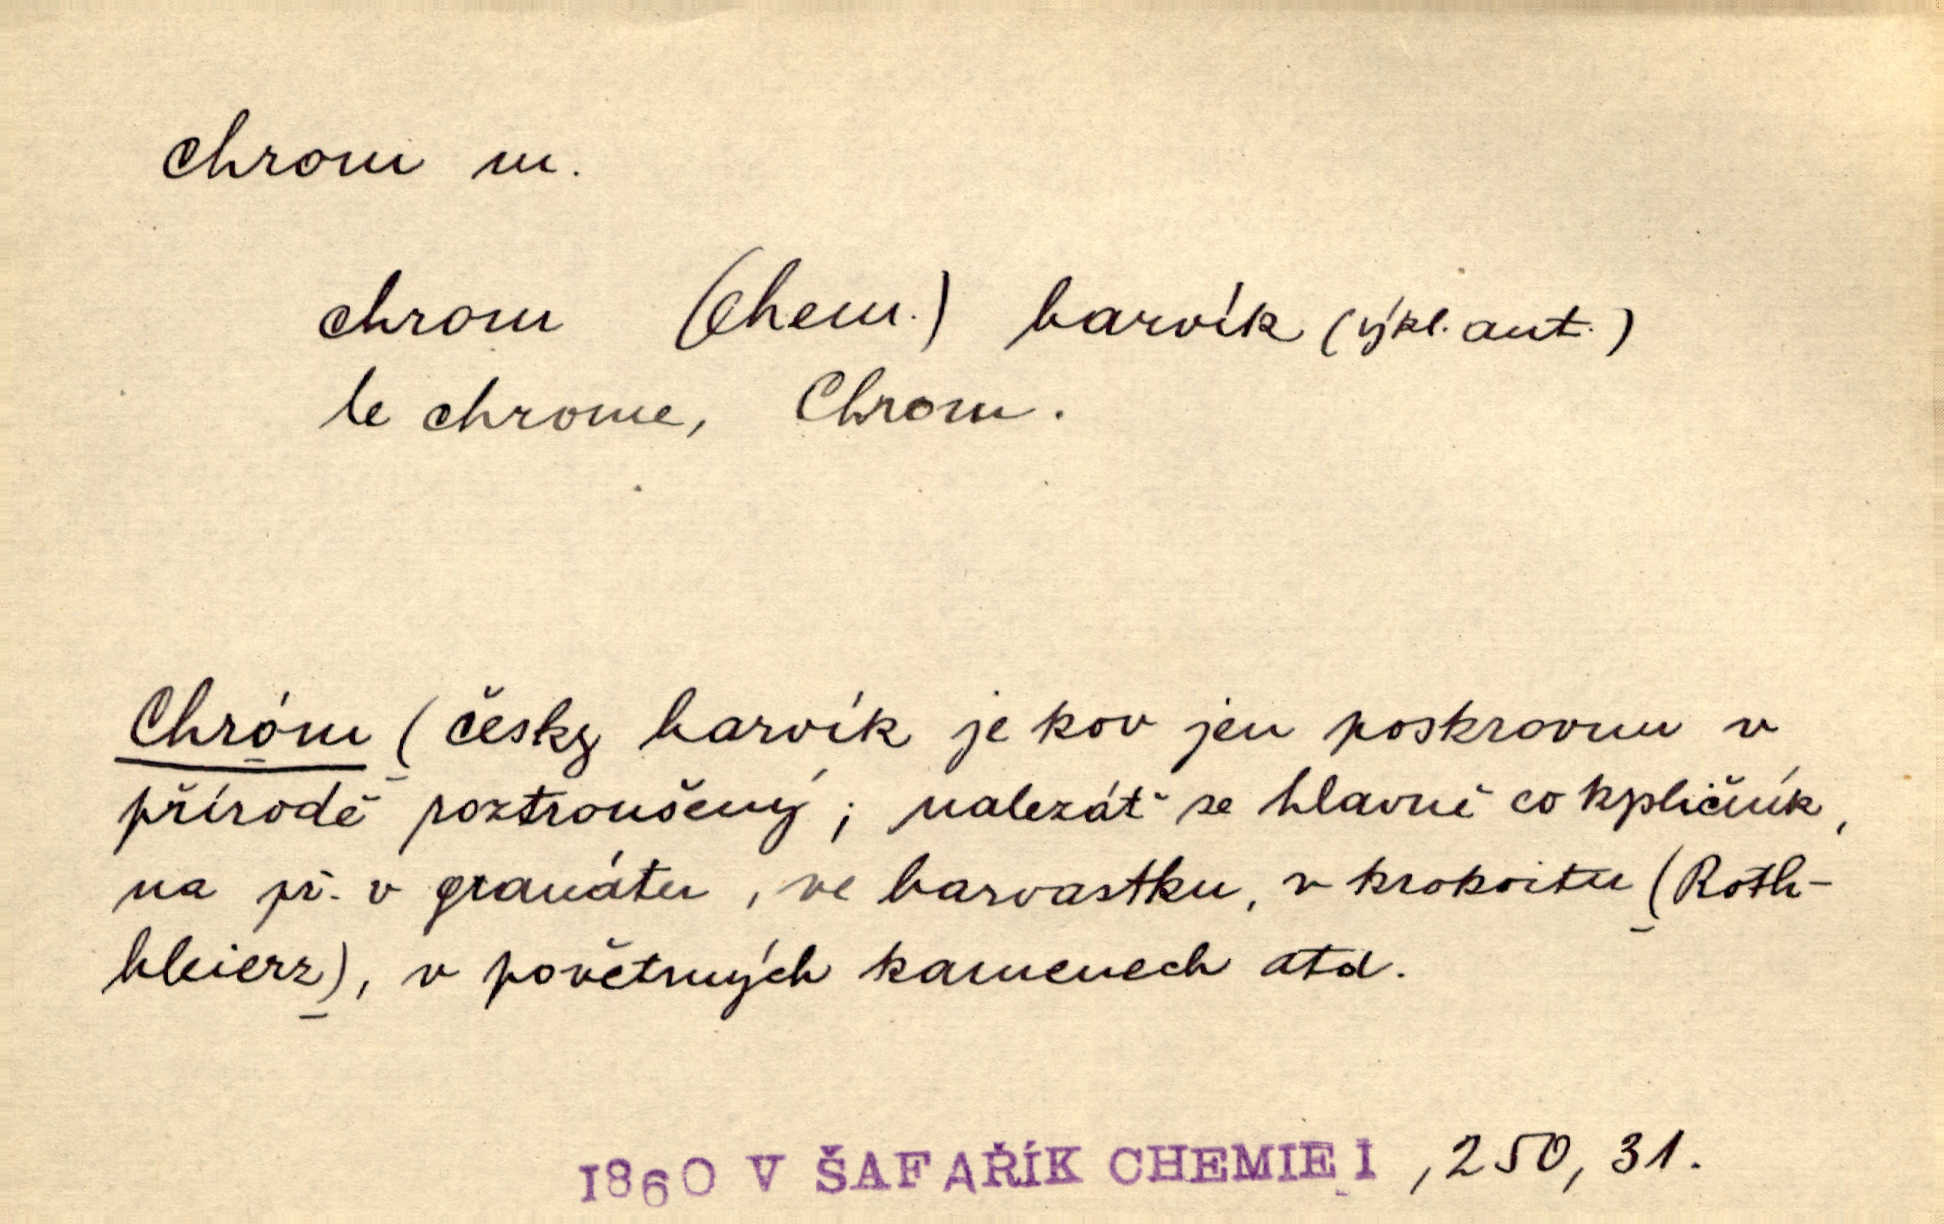 chrom m.
chrom (chem.) barvík (výkl. aut.)
le chrome, Chrom.
Chróm (česky barvík je kov jen poskrovnu v
přírodě roztroušený; nalezáť se hlavně co kpličník,
na př. v granátu, ve barvastku, v krokoitu (Roth-
bleierz), v povětrných kamenech atd.
1860 V ŠAFAŘÍK CHEMIE I, 250, 31.